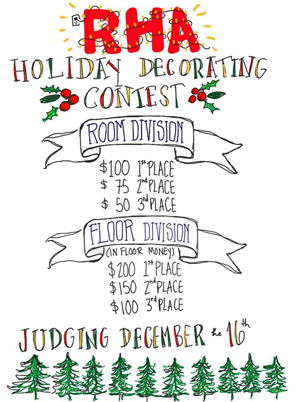 RHA
HOLIDAY DECORATING
CONTEST
ROOM DIVISION
$100 1st PLACE
$ 75 2nd PLACE
$ 50 3rd PLACE
FLOOR DIVISION
(IN FLOOR MONEY)
$200 1st PLACE
$150 2nd PLACE
$100 3rd PLACE
JUDGING DECEMBER the 16th